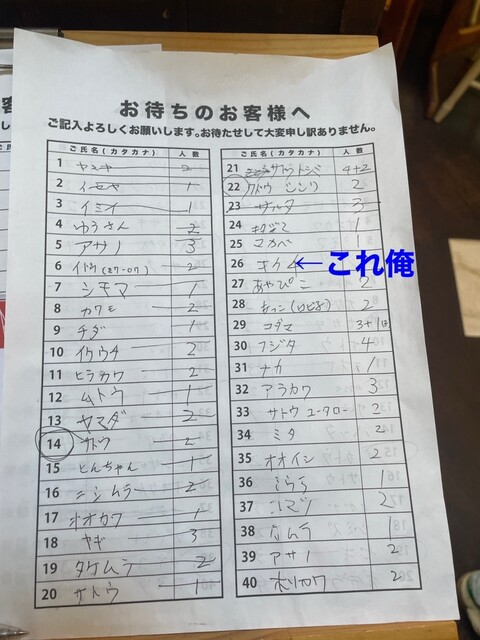 お待ちのお客様へ
ご記入よろしくお願いします。お待たせして大変申し訳ありません。
ご氏名(カタカナ) 人数
1 2
2 イセヤ 1
3 イミイ 1
4 ゆうさん 2
5 アサノ 3
6 イトウ 2
7 シモマ 1
8 カワモ 2
9 チダ 1
10 イケウチ 2
11 ヒラカワ 2
12 ムトウ 1
13 ヤマダ 2
14 サトウ 2
15 とんちゃん 1
16 ニシムラ 2
17 オオカワ 1
18 ヤギ 3
19 タケムラ 2
20 サトウ 1
ご氏名(カタカナ) 人数
21 サトウ 4+2
22 2
23 3
24 1
25 マカベ 1
26 ←これ俺
27 あやぴこ 2
28 2
29 コダマ 3+1
30 フジタ 4
31 ナカ 1
32 アラカワ 3
33 サトウ ユータロー 2
34 ミタ 2
35 オオイシ 2
36 ミウラ 1
37 コマツ 2
38 1
39 アサノ 2
40 ホリカワ 2